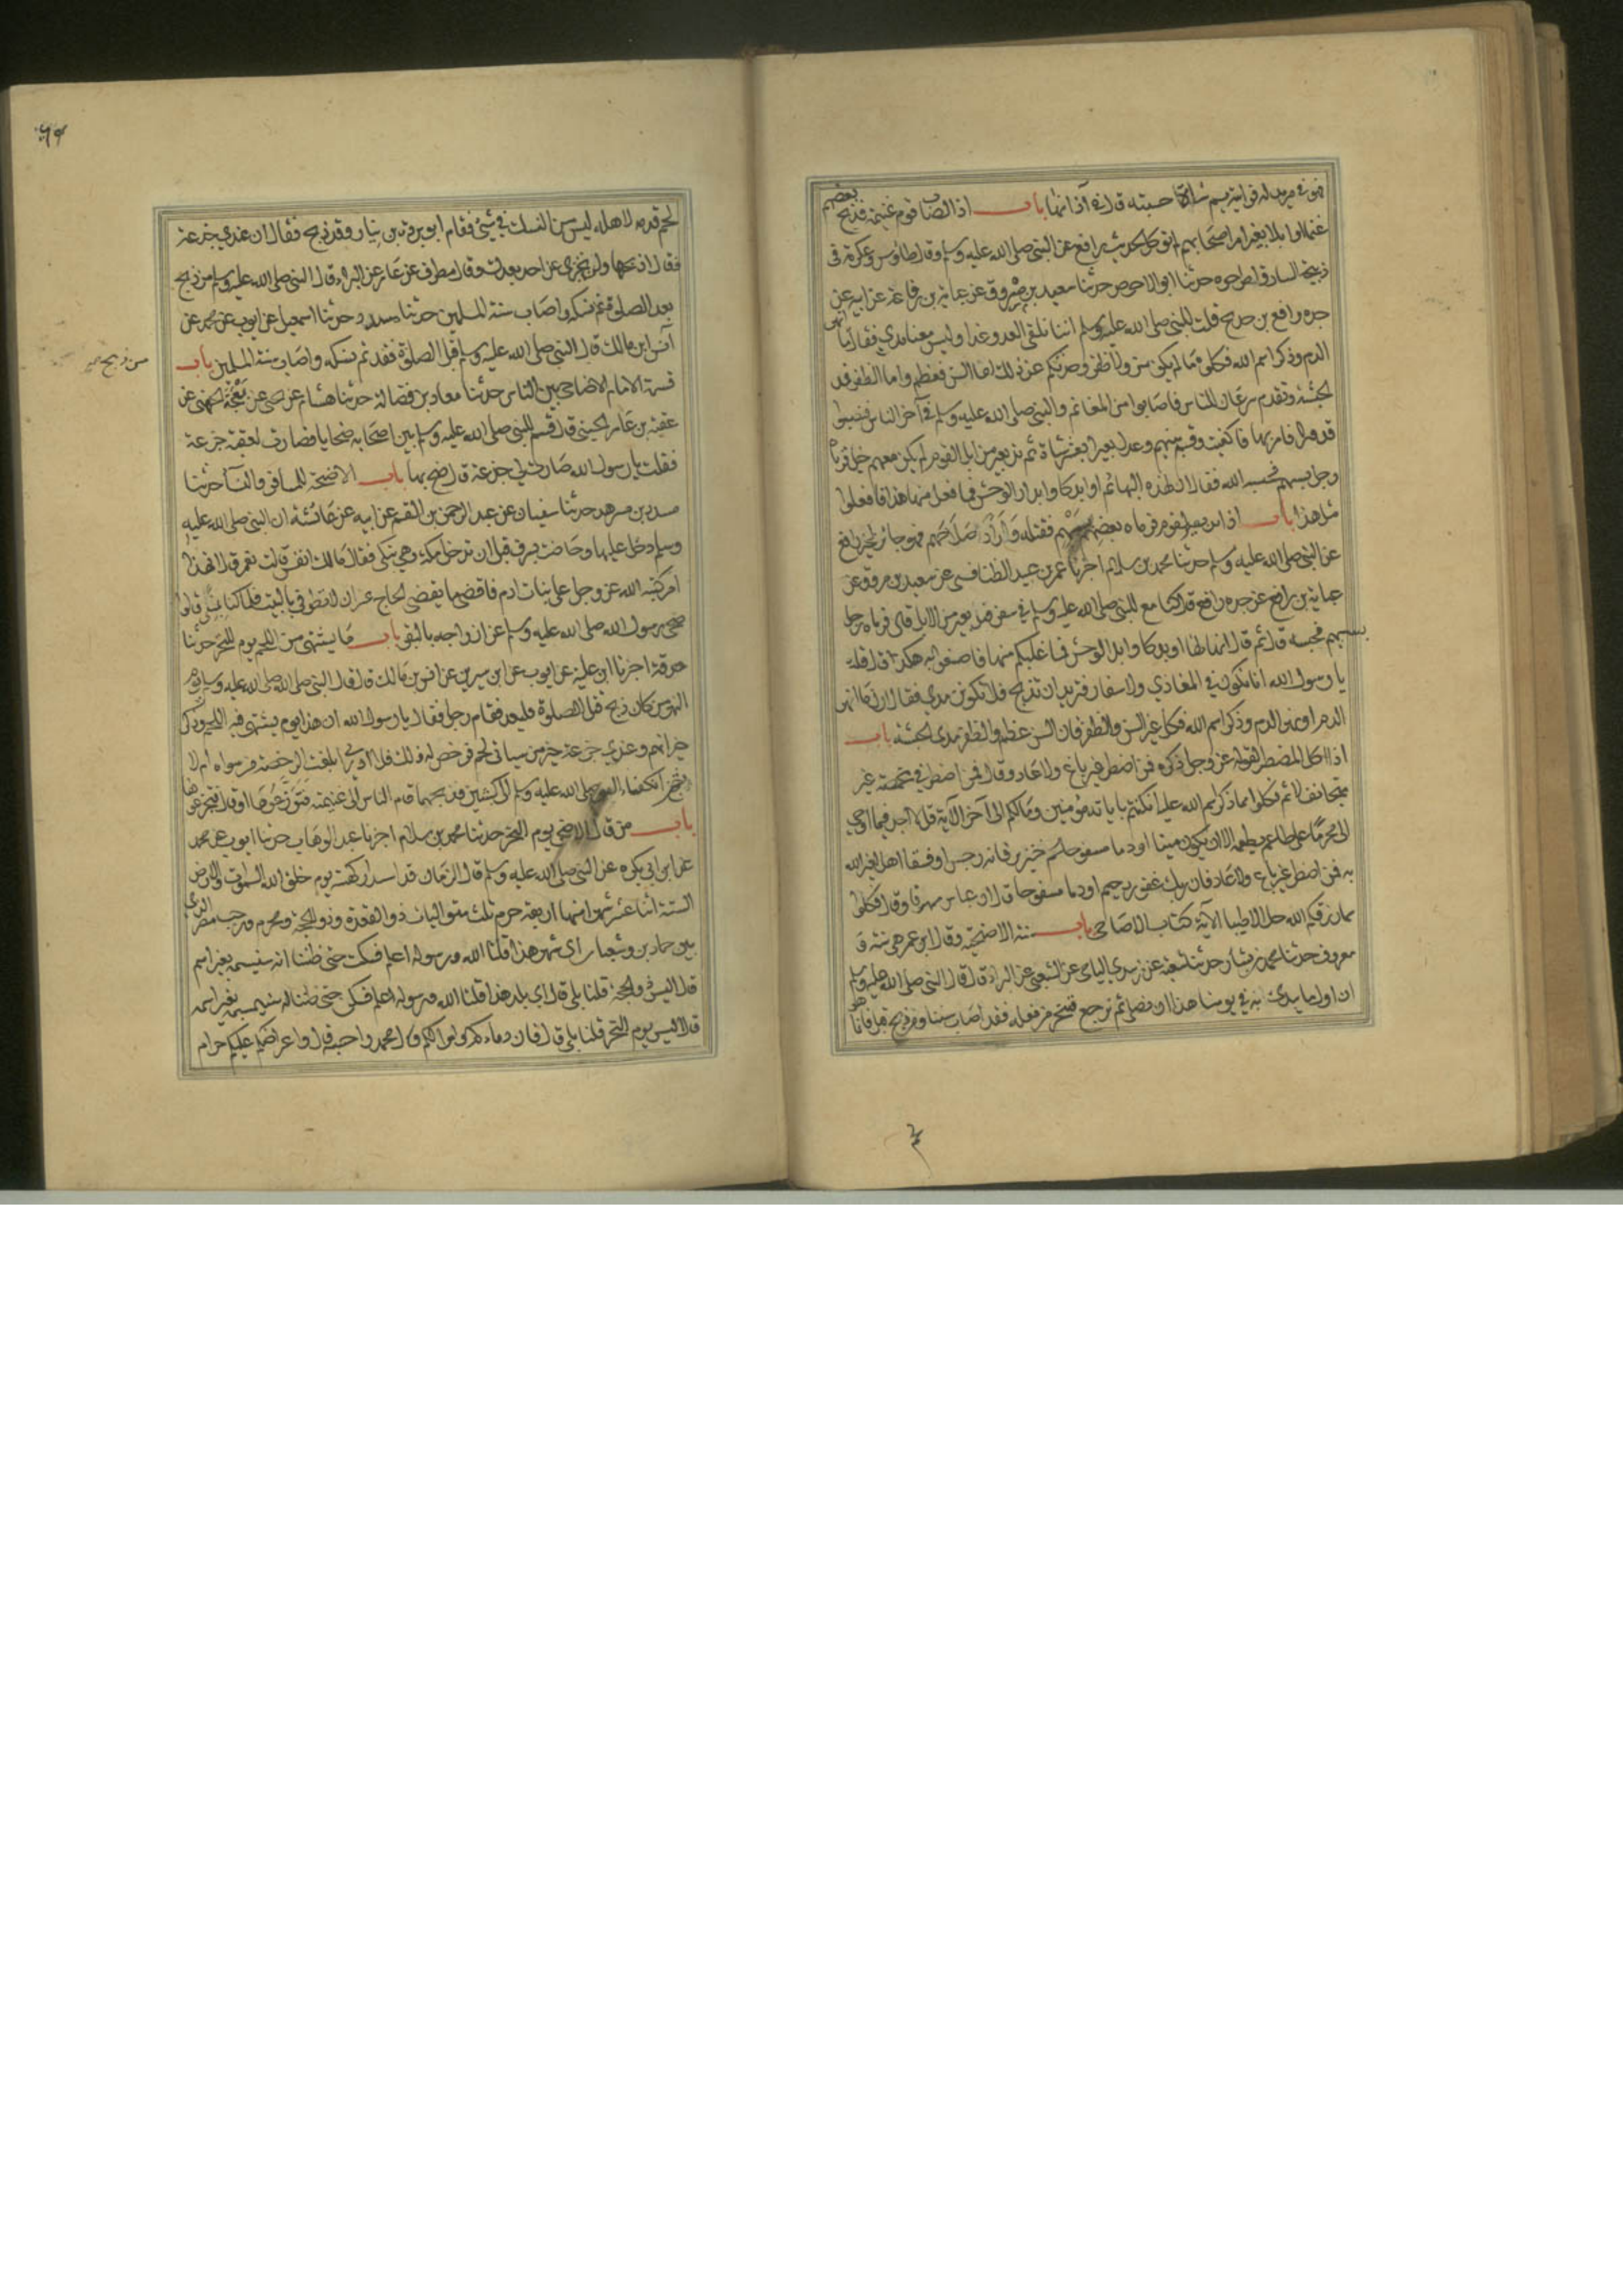 وهو في مربد له فرايته يسم شاة حسبته قال في آذانها باب اذا اصاب قوم غنيمة فذبح بعضهم
غنما او ابلا بغير امر اصحابهم لم توكل لحديث رافع عن النبي صلى الله عليه وسلم وقال طاوس وعكرمة في
ذبيحة السارق اطرحوه حدثنا ابو الاحوص حدثنا سعيد بن مسروق عن عباية بن رفاعة عن ابيه عن
جده رافع بن خديج قلت للنبي صلى الله عليه وسلم اننا نلقى العدو غدا وليس معنا مدي فقال ما انهر
الدم وذكر اسم الله فكلوا ما لم يكن سن ولا ظفر وساحدثكم عن ذلك اما السن فعظم واما الظفر فمدى
الحبشة وتقدم سرعان الناس فاصابوا من المغانم والنبي صلى الله عليه وسلم في آخر الناس فنصبوا
قدورا فامر بها فاكفئت وقسم بينهم وعدل بعيرا بعشر شاة ثم ند بعير من ابل القوم ولم يكن معهم خيل فرماه
رجل بسهم فحبسه الله فقال ان لهذه البهائم اوابد كاوابد الوحش فما فعل منها هذا فافعلوا
مثل هذا باب اذا ند بعير لقوم فرماه بعضهم بسهم فقتله واراد صلاحهم فهو جائز لخبر رافع
عن النبي صلى الله عليه وسلم حدثنا محمد بن سلام اخبرنا عمر بن عبيد الطنافسي عن سعيد بن مسروق عن
عباية بن رافع عن جده رافع قال كنا مع النبي صلى الله عليه وسلم في سفر فند بعير من الابل قال فرماه رجل
بسهم فحبسه قال ثم قال ان لها اوابد كاوابد الوحش فما غلبكم منها فاصنعوا به هكذا قال قلت
يا رسول الله انا نكون في المغازي والاسفار فنريد ان نذبح فلا تكون مدي فقال ارن ما انهر
الدم او نهر الدم وذكر اسم الله فكل غير السن والظفر فان السن عظم والظفر مدى الحبشة باب
اذا اكل المضطر لقوله عز وجل ذكره فمن اضطر غير باغ ولا عاد وقال فمن اضطر في مخمصة غير
متجانف لاثم فكلوا مما ذكر اسم الله عليه ان كنتم باياته مؤمنين وما لكم الى آخر الآية قل لا اجد فيما اوحي
الي محرما على طاعم يطعمه الا ان يكون ميتة او دما مسفوحا او لحم خنزير فانه رجس او فسقا اهل لغير الله
به فمن اضطر غير باغ ولا عاد فان ربك غفور رحيم او دما مسفوحا قال ابن عباس مهراقا وقال فكلوا
مما رزقكم الله حلالا طيبا الآية كتاب الاضاحي باب سنة الاضحية وقال ابن عمر هي سنة و
معروف حدثنا محمد بن بشار حدثنا شعبة عن زبيد اليامي عن الشعبي عن البراء قال قال النبي صلى الله عليه وسلم
ان اول ما نبدئ به في يومنا هذا ان نصلي ثم نرجع فننحر من فعله فقد اصاب سنتنا ومن ذبح قبل فانما هو
٤
٦٩
لحم قدمه لاهله ليس من النسك في شئ فقام ابو بردة بن نيار وقد ذبح فقال ان عندي جذعة
فقال اذبحها ولن تجزي عن احد بعدك وقال مطرف عن عامر عن البراء قال النبي صلى الله عليه وسلم من ذبح
بعد الصلوة تم نسكه واصاب سنة المسلمين حدثنا مسدد حدثنا اسمعيل عن ايوب عن محمد عن
انس ابن مالك قال النبي صلى الله عليه وسلم قبل الصلوة فقد تم نسكه واصاب سنة المسلمين باب
من ذبح
قسمة الامام الاضاحي بين الناس حدثنا معاذ بن فضالة حدثنا هشام عن يحيى عن بعجة الجهني عن
عقبة بن عامر الجهني قال قسم النبي صلى الله عليه وسلم بين اصحابه ضحايا فصارت لعقبة جذعة
فقلت يا رسول الله صارت لي جذعة قال ضح بها باب الاضحية للمسافر والنساء حدثنا
مسدد بن مسرهد حدثنا سفيان عن عبد الرحمن بن القسم عن ابيه عن عائشة ان النبي صلى الله عليه
وسلم دخل عليها وحاضت بسرف قبل ان تدخل مكة وهي تبكي فقال ما لك انفست قالت نعم قال ان هذا
امر كتبه الله عز وجل على بنات ادم فاقضي ما يقضي الحاج غير ان لا تطوفي بالبيت فلما كنا بمنى قالوا
ضحى رسول الله صلى الله عليه وسلم عن ازواجه بالبقر باب ما يشتهى من اللحم يوم النحر حدثنا
صدقة اخبرنا ابن علية عن ايوب عن ابن سيرين عن انس بن مالك قال قال النبي صلى الله عليه وسلم يوم
النحر من كان ذبح قبل الصلوة فليعد فقام رجل فقال يا رسول الله ان هذا يوم يشتهى فيه اللحم وذكر
جيرانه وعندي جذعة خير من شاتي لحم فرخص له في ذلك فلا ادري ابلغت الرخصة من سواه ام لا
ثم انكفأ النبي صلى الله عليه وسلم الى كبشين فذبحهما وقام الناس الى غنيمة فتوزعوها او قال فتجزعوها
باب من قال الاضحى يوم النحر حدثنا محمد بن سلام اخبرنا عبد الوهاب حدثنا ايوب عن محمد
عن ابن ابي بكرة عن النبي صلى الله عليه وسلم قال الزمان قد استدار كهيئته يوم خلق الله السموات والارض
السنة اثنا عشر شهرا منها اربعة حرم ثلث متواليات ذو القعدة وذو الحجة ومحرم ورجب مضر الذي
بين جمادى وشعبان اي شهر هذا قلنا الله ورسوله اعلم فسكت حتى ظننا انه سيسميه بغير اسمه
قال اليس ذو الحجة قلنا بلى قال اي بلد هذا قلنا الله ورسوله اعلم فسكت حتى ظننا انه سيسميه بغير اسمه
قال اليس يوم النحر قلنا بلى قال فان دماءكم واموالكم قال محمد واحسبه قال واعراضكم عليكم حرام